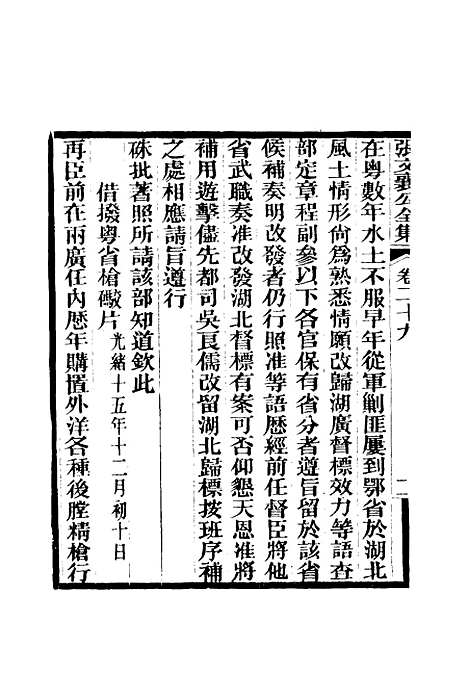 張文襄公全集 卷二十九 二
在粵數年水土不服早年從軍剿匪屢到鄂省於湖北
風土情形尚爲熟悉情願改歸湖廣督標效力等語查
部定章程副參以下各官保有省分者遵旨留於該省
候補奏明改發者仍行照准等語歷經前任督臣將他
省武職奏准改發湖北督標有案可否仰懇天恩准將
補用遊擊儘先都司吳良儒改留湖北歸標按班序補
之處相應請旨遵行
硃批著照所請該部知道欽此
借撥粵省槍礮片光緒十五年十二月初十日
再臣前在兩廣任内歷年購置外洋各種後膛精槍行